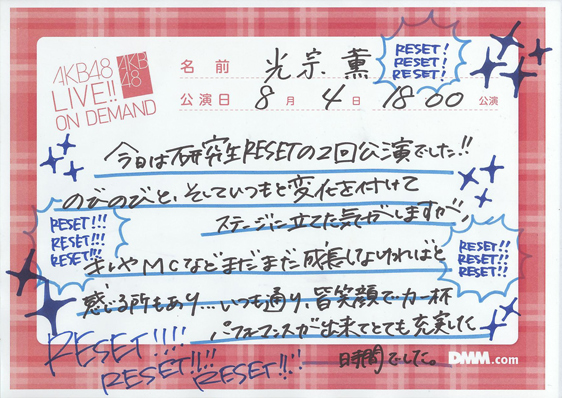 AKB48
LIVE!!
ON DEMAND
AKB
48
名前 光宗 薫
公演日 8月 4日 18:00 公演
RESET!
RESET!
RESET!
今日は研究生RESETの2回公演でした!!
のびのびと、そしていつもと変化を付けて
ステージに立てた気がしますが、
RESET!!!
RESET!!!
RESET!!!
キレやMCなどまだまだ成長しなければと
RESET!!
RESET!!
RESET!!
感じる所もあり…いつも通り、皆笑顔で力一杯
パフォーマンスが出来てとても充実した
時間でした。
RESET!!!!
RESET!!!!
RESET!!
DMM.com